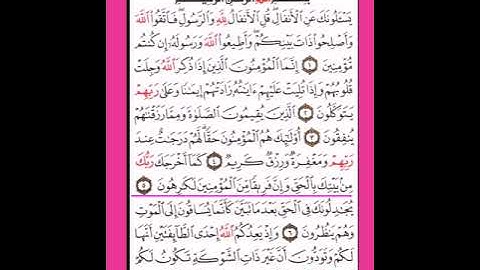 بِسْمِ اللَّهِ الرَّحْمَٰنِ الرَّحِيمِ
يَسْـَٔلُونَكَ عَنِ ٱلْأَنفَالِ ۖ قُلِ ٱلْأَنفَالُ لِلَّهِ وَٱلرَّسُولِ ۖ فَٱتَّقُوا۟ ٱللَّهَ
وَأَصْلِحُوا۟ ذَاتَ بَيْنِكُمْ ۖ وَأَطِيعُوا۟ ٱللَّهَ وَرَسُولَهُۥٓ إِن كُنتُم
مُّؤْمِنِينَ ١ إِنَّمَا ٱلْمُؤْمِنُونَ ٱلَّذِينَ إِذَا ذُكِرَ ٱللَّهُ وَجِلَتْ
قُلُوبُهُمْ وَإِذَا تُلِيَتْ عَلَيْهِمْ ءَايَٰتُهُۥ زَادَتْهُمْ إِيمَٰنًا وَعَلَىٰ رَبِّهِمْ
يَتَوَكَّلُونَ ٢ ٱلَّذِينَ يُقِيمُونَ ٱلصَّلَوٰةَ وَمِمَّا رَزَقْنَٰهُمْ
يُنفِقُونَ ٣ أُو۟لَٰٓئِكَ هُمُ ٱلْمُؤْمِنُونَ حَقًّا ۚ لَّهُمْ دَرَجَٰتٌ عِندَ
رَبِّهِمْ وَمَغْفِرَةٌ وَرِزْقٌ كَرِيمٌ ٤ كَمَآ أَخْرَجَكَ رَبُّكَ
مِنۢ بَيْتِكَ بِٱلْحَقِّ وَإِنَّ فَرِيقًا مِّنَ ٱلْمُؤْمِنِينَ لَكَٰرِهُونَ ٥
يُجَٰدِلُونَكَ فِى ٱلْحَقِّ بَعْدَ مَا تَبَيَّنَ كَأَنَّمَا يُسَاقُونَ إِلَى ٱلْمَوْتِ
وَهُمْ يَنظُرُونَ ٦ وَإِذْ يَعِدُكُمُ ٱللَّهُ إِحْدَى ٱلطَّآئِفَتَيْنِ أَنَّهَا
لَكُمْ وَتَوَدُّونَ أَنَّ غَيْرَ ذَاتِ ٱلشَّوْكَةِ تَكُونُ لَكُمْ